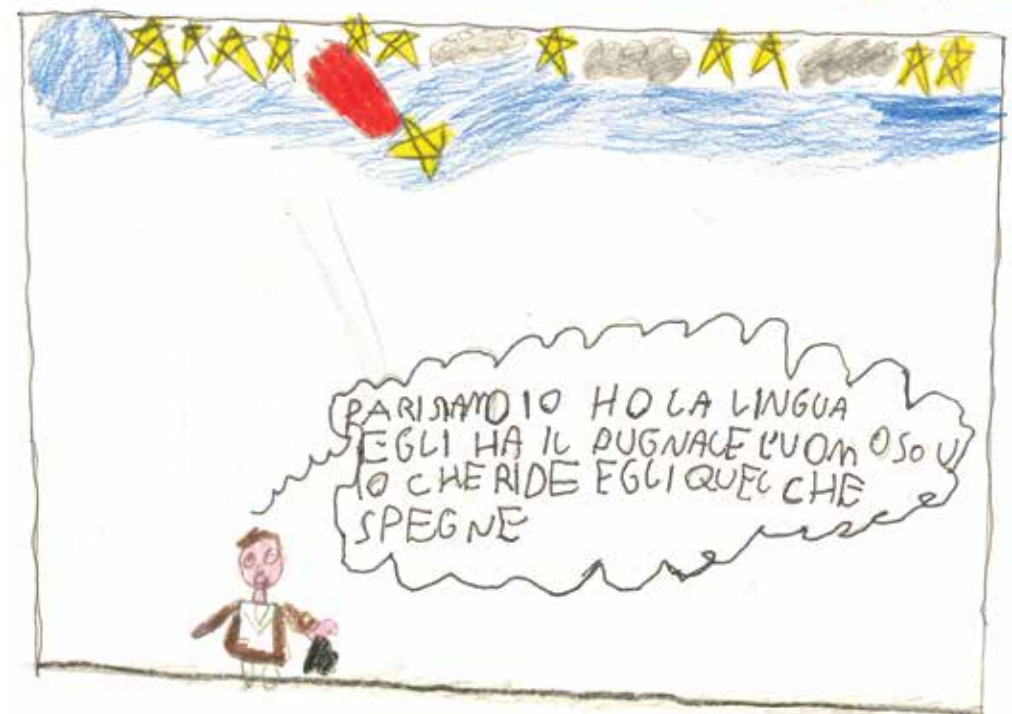 PARI SIAMO IO HO LA LINGUA
EGLI HA IL PUGNALE L'UOMO SO U
IO CHE RIDE EGLI QUEL CHE
SPEGNE